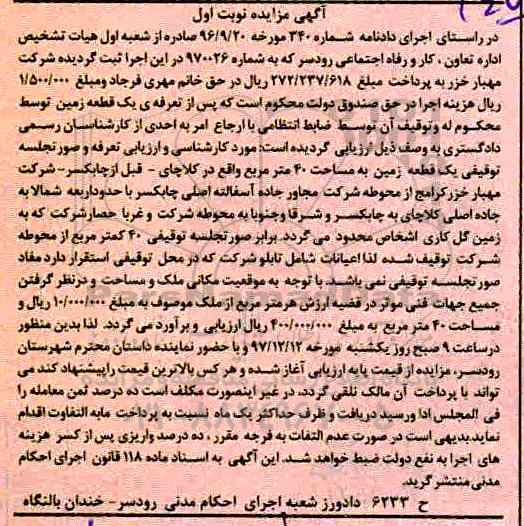 آگهی مزایده نوبت اول
در راستای اجرای دادنامه شماره ۳۴۰ مورخه ۹۶/۹/۲۰ صادره از شعبه اول هیات تشخیص
اداره تعاون ، کار و رفاه اجتماعی رودسر که به شماره ۹۷۰۰۲۶ در این اجرا ثبت گردیده شرکت
مهیار خزر به پرداخت مبلغ ۲۷۲/۲۳۷/۶۱۸ ریال در حق خانم مهری فرجاد ومبلغ ۱/۵۰۰/۰۰۰
ریال هزینه اجرا در حق صندوق دولت محکوم است که پس از تعرفه ی یک قطعه زمین توسط
محکوم له وتوقیف آن توسط ضابط انتظامی با ارجاع امر به احدی از کارشناسان رسمی
دادگستری به وصف ذیل ارزیابی گردیده است: مورد کارشناسی و ارزیابی تعرفه و صورتجلسه
توقیفی یک قطعه زمین به مساحت ۴۰ متر مربع واقع در کلاچای - قبل ازچابکسر- شرکت
مهیار خزرکرامج از محوطه شرکت مجاور جاده آسفالته اصلی چابکسر با حدوداربعه شمالا به
جاده اصلی کلاچای به چابکسر و شرقا وجنوبا به محوطه شرکت و غربا حصارشرکت که به
زمین گل کاری اشخاص محدود می گردد. برابر صورتجلسه توقیفی ۴۰ کمتر مربع از محوطه
شرکت توقیف شده لذا اعیانات شامل تابلو شرکت که در محل توقیفی استقرار دارد مفاد
صورتجلسه توقیفی نمی باشد. با توجه به موقعیت مکانی ملک و مساحت و درنظر گرفتن
جمیع جهات فنی موثر در قضیه ارزش هرمتر مربع از ملک موصوف به مبلغ ۱۰/۰۰۰/۰۰۰ ریال و
مساحت ۴۰ متر مربع به مبلغ ۴۰۰/۰۰۰/۰۰۰ ریال ارزیابی و برآورد می گردد. لذا بدین منظور
درساعت ۹ صبح روز یکشنبه مورخه ۹۷/۱۲/۱۲ و با حضور نماینده داستان محترم شهرستان
رودسر، مزایده از قیمت پایه ارزیابی آغاز شده و هرکس بالاترین قیمت راپیشنهاد کند می
تواند با پرداخت آن مالک تلقی گردد، در غیر اینصورت مکلف است ده درصد ثمن معامله را
فی المجلس ادا ورسید دریافت و ظرف حداکثر یک ماه نسبت به پرداخت مابه التفاوت اقدام
نماید.بدیهی است در صورت عدم التفات به فرجه مقرر ، ده درصد واریزی پس از کسر هزینه
های اجرا به نفع دولت ضبط خواهد شد. این آگهی به اسناد ماده ۱۱۸ قانون اجرای احکام
مدنی منتشر گردید.
ح ۶۲۳۳ دادورز شعبه اجرای احکام مدنی رودسر- خندان بالنگاه